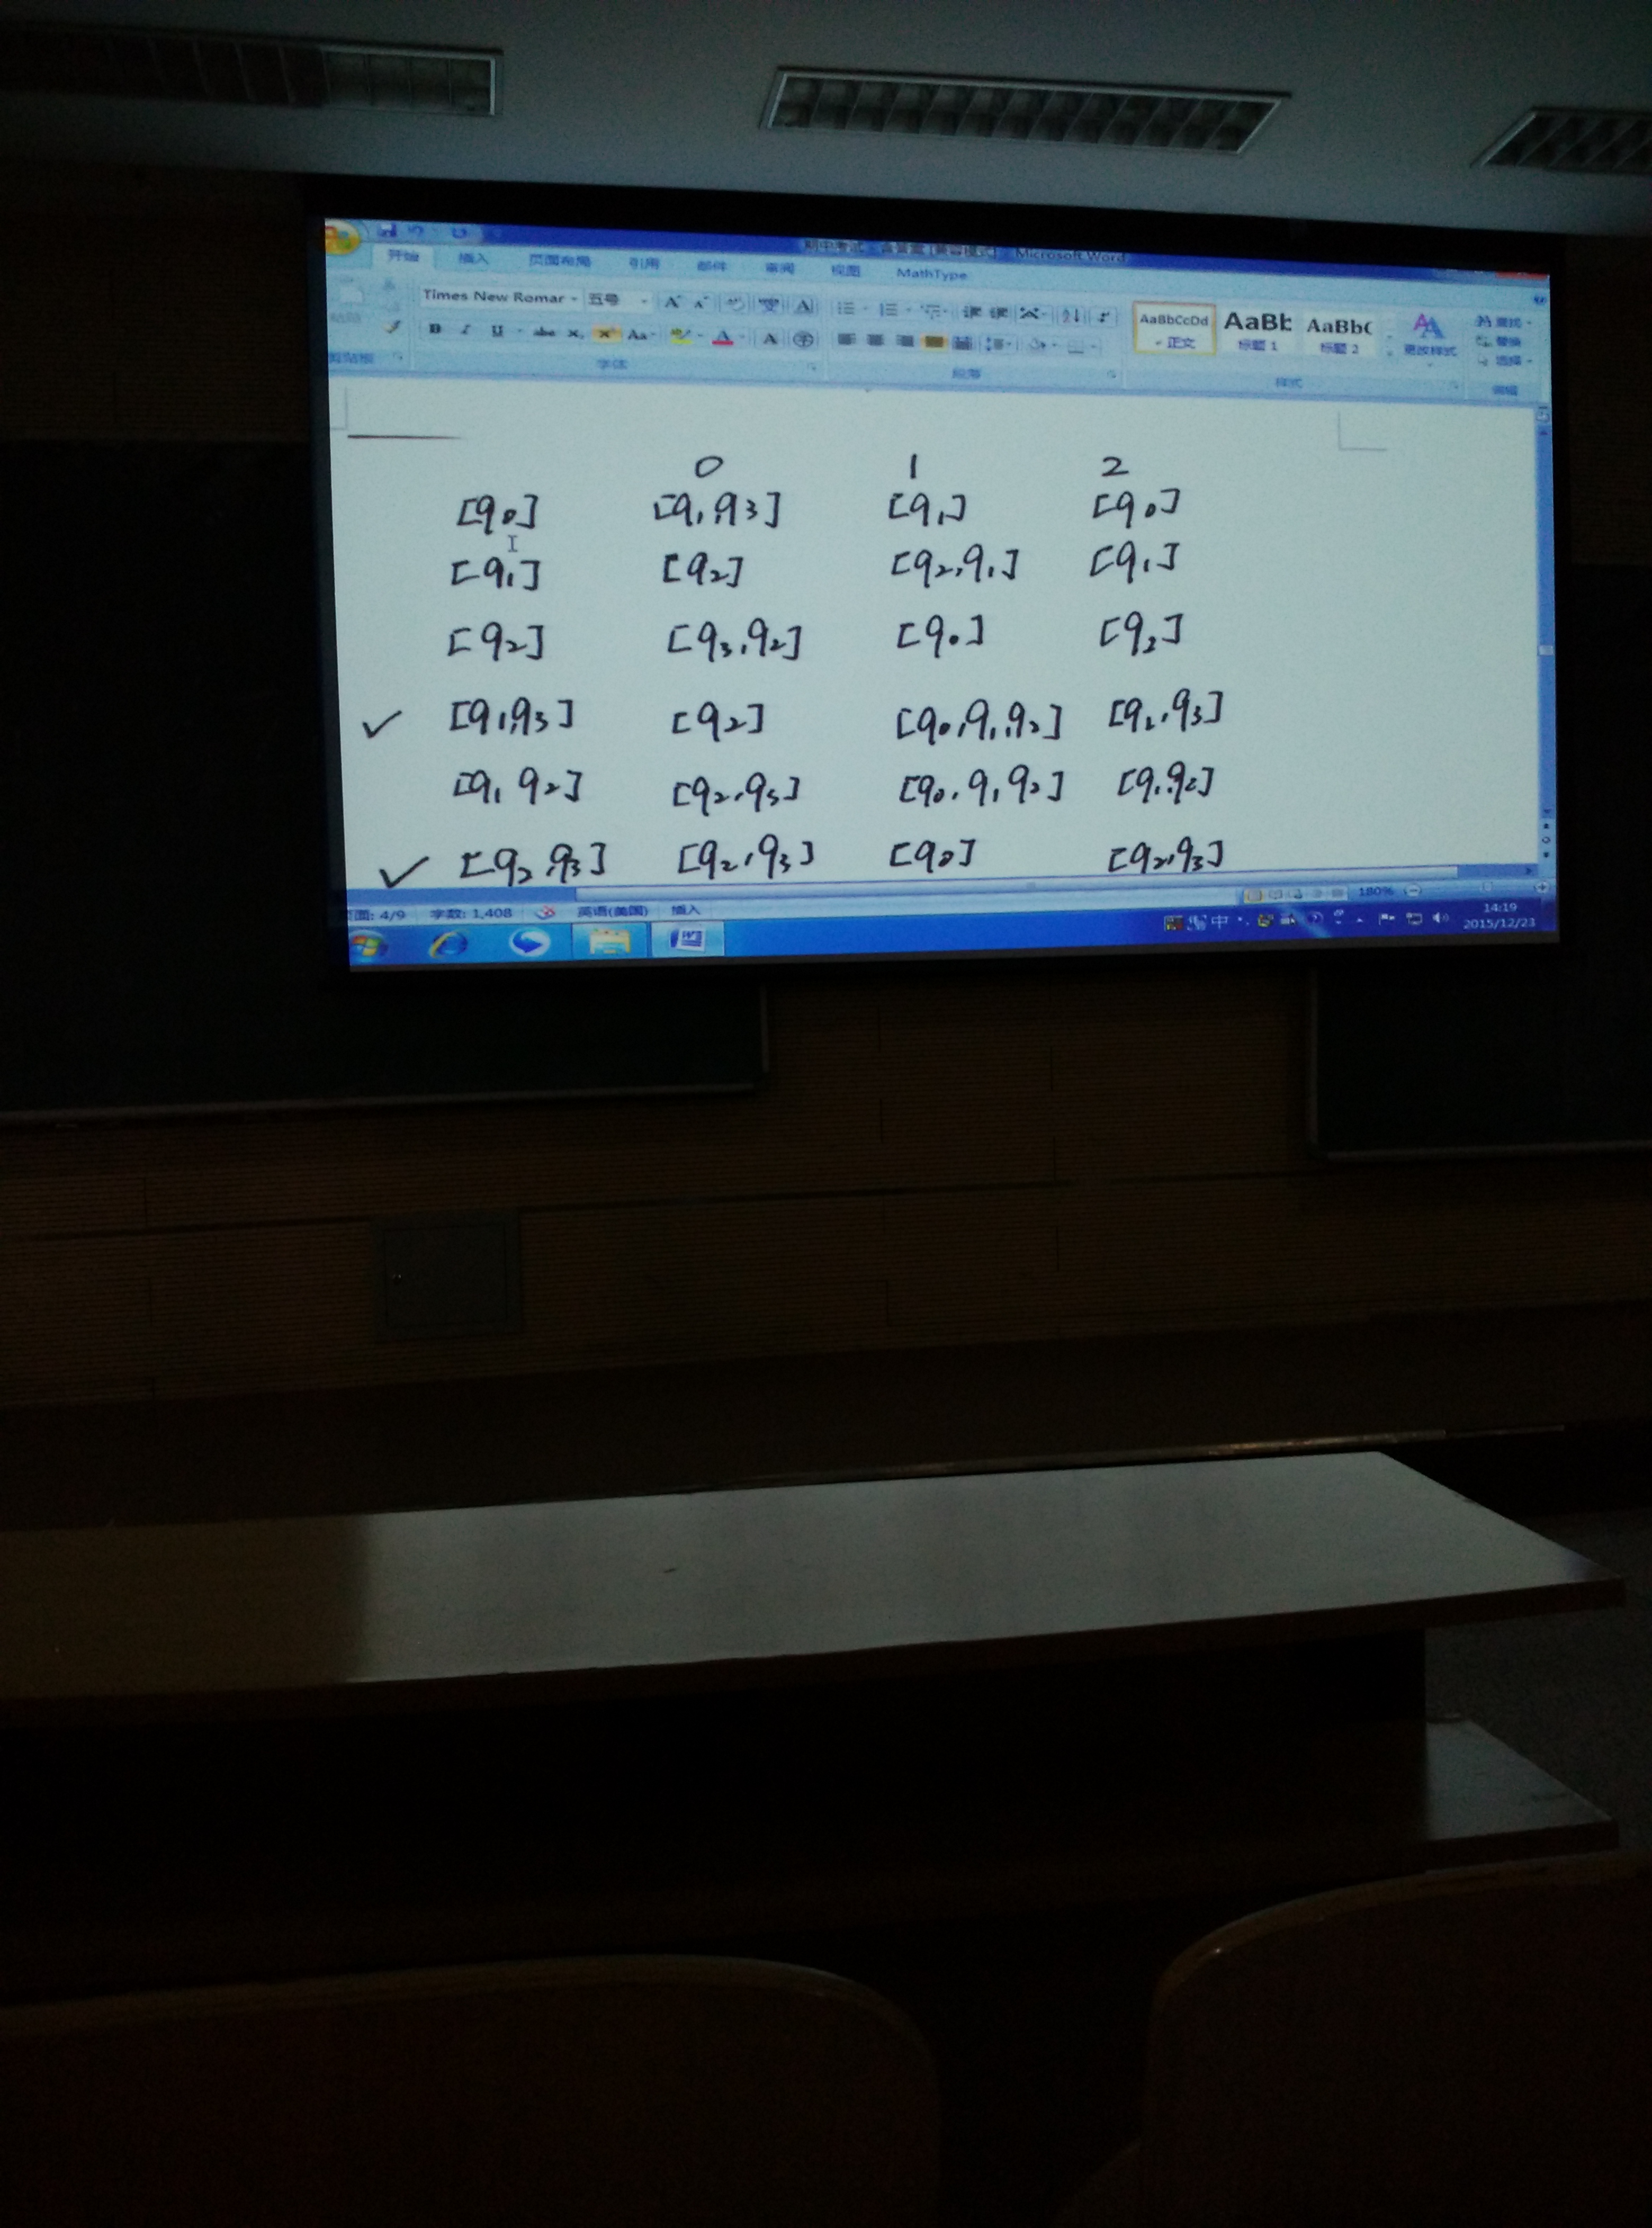 期中考试 - 含答案 [兼容模式] - Microsoft Word
开始 插入 页面布局 引用 邮件 审阅 视图 MathType
Times New Romar 五号
AaBbCcDd AaBb AaBbC
B I U abc x x Aa A A
正文 标题 1 标题 2 更改样式
查找
替换
选择
剪贴板 字体 段落 样式 编辑
0 1 2
[q0] [q1,q3] [q1] [q0]
[q1] [q2] [q2,q1] [q1]
[q2] [q3,q2] [q0] [q2]
✓ [q1,q3] [q2] [q0,q1,q2] [q1,q3]
[q1 q2] [q2,q3] [q0,q1 q2] [q1,q2]
✓ [q2,q3] [q2,q3] [q0] [q2,q3]
页面: 4/9 字数: 1,408 英语(美国) 插入 180%
中 14:19
2015/12/23